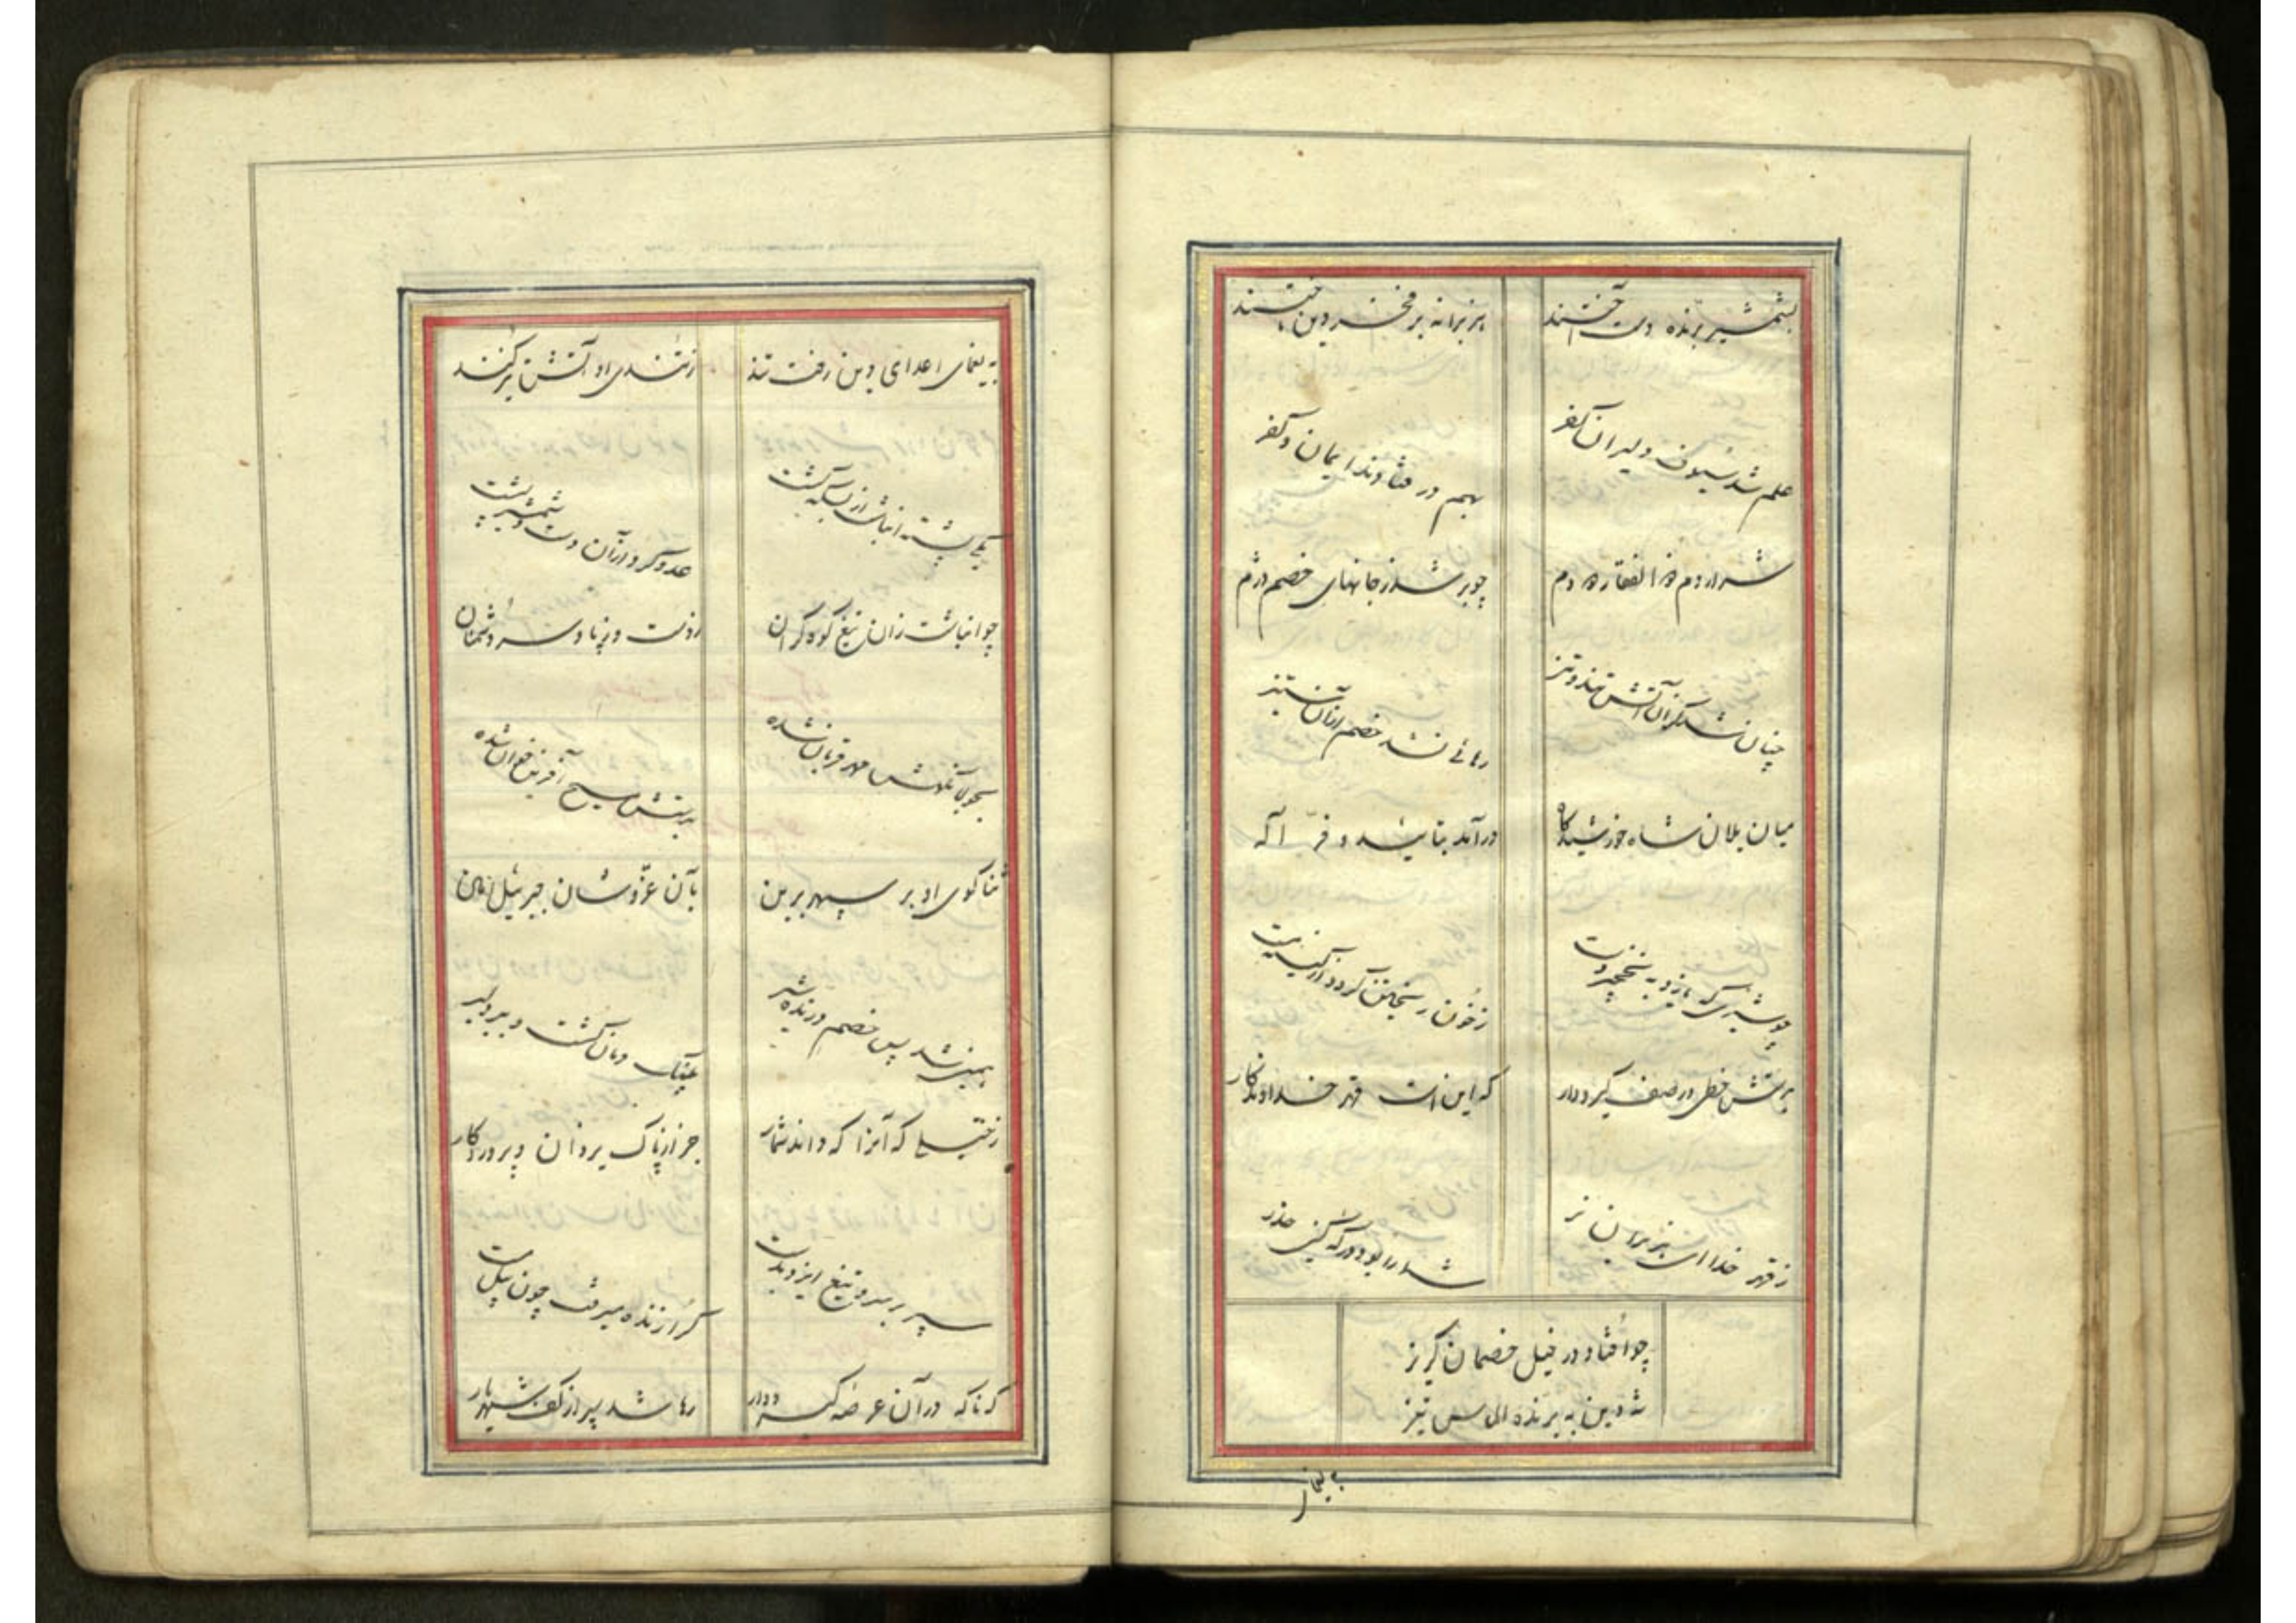 بشمشیر برنده دست آختند
هزبرانه بر فخر دین تاختند
علم شد سیوف دلیران کفر
بهم در فتادند ایمان و کفر
شرار دم ذوالفقار دو دم
چو بر شد ز جانهای خصم دژم
چنان شد کزان آتش تند و تیز
رهائی نشد خصم را زان ستیز
میان یلان شاه خورشیدگاه
درآمد بتایید و فر اله
چو شیری که یازد به نخجیر دست
ز خون ریختن گردد از کینه مست
برتش خطی در صف گیر و دار
که این است قهر خداوندگار
ز قهر خدا ای هزبران نر
شما را بود در که کین حذر
چو افتاد در خیل خصمان گریز
شه دین به برنده الماس تیز
به یغمای
به یغمای اعدای دین رفت تند
ز تندی او آتش تیز کند
یکی پشته انباشت از بسکه کشت
عدو کرد از آن دست و شمشیر پشت
چو انباشت زان تیغ کوه گران
ز دست و ز پا و سر دشمنان
بجولانگهش مهر قربان شده
بر تنش مسیح آفرین خوان شده
ثنا گوی او بر سپهر برین
بآن عز و شان جبرئیل امین
همی شد پس خصم درنده شیر
پلنگ دمان گشت و ببر دلیر
ز خیلی که آنرا که داند شمار
جز از پاک یزدان و پروردگار
سپر بر سر و تیغ ایزد بدست
گرازنده میرفت چون پیل مست
که ناگه در آن عرصه گیر و دار
رها شد سپر از کف شهریار